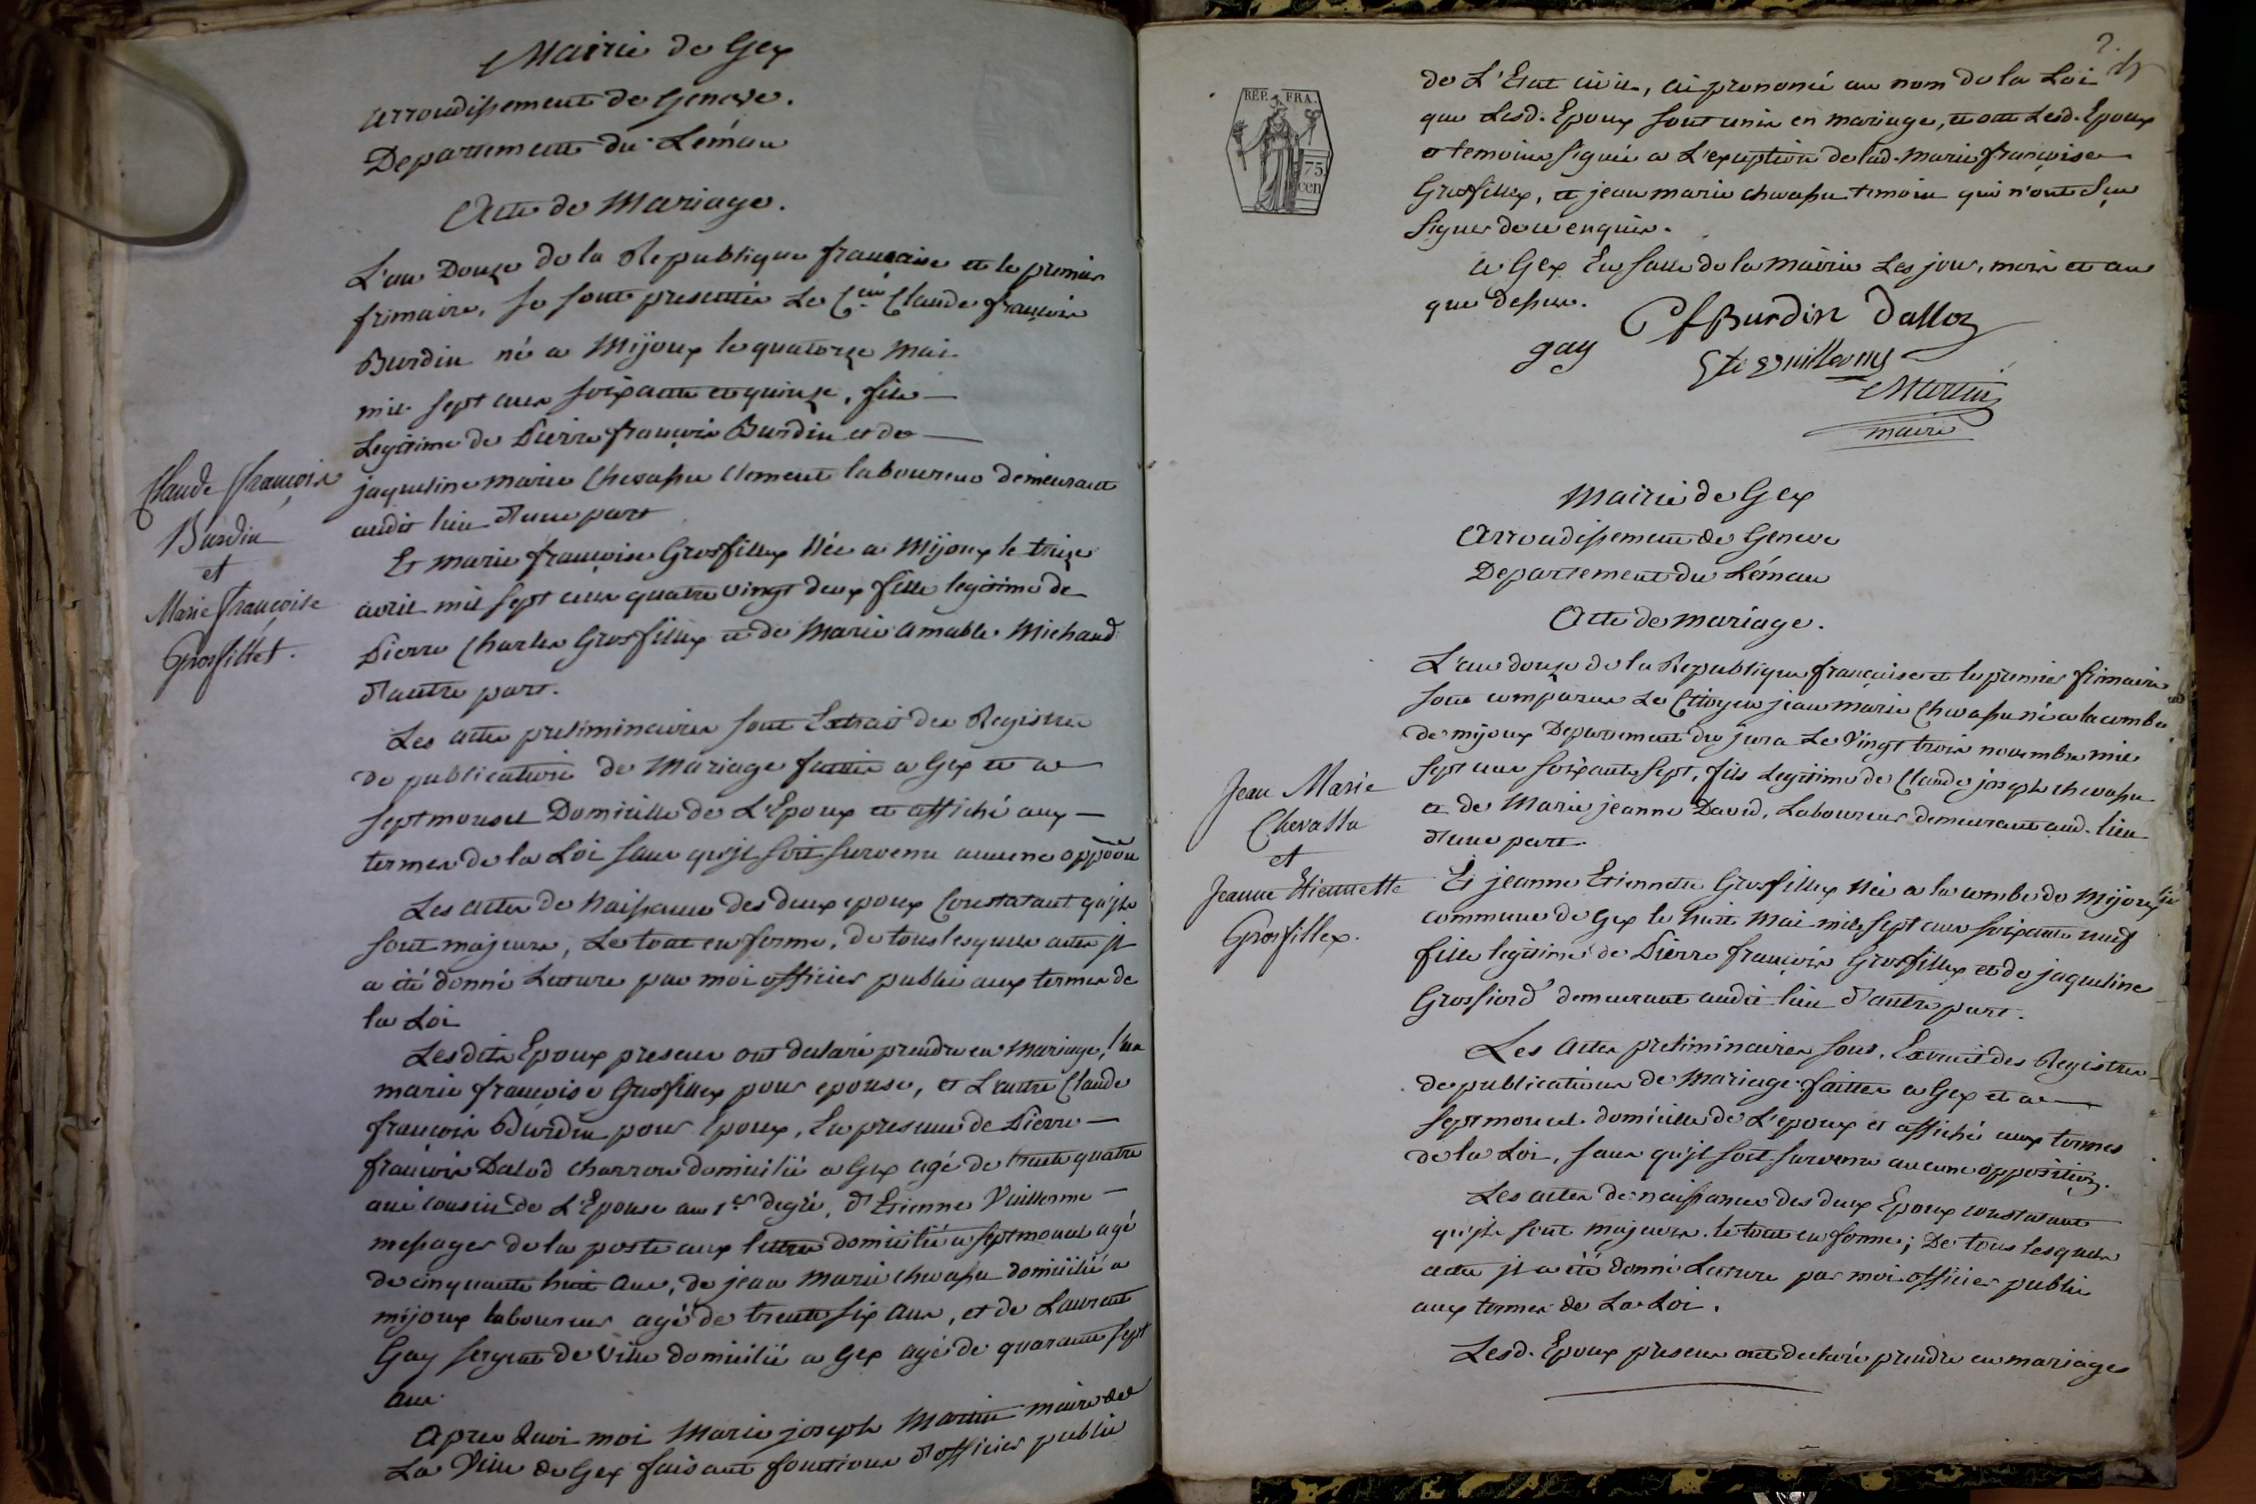 Mairie de Gex
arrondissement de Geneve.
Departement du Léman
Acte de Mariage.
L'an Douze de la Republique française et le premier
frimaire, se sont presentés Le C.en Claude françois
Burdin né a Mijoux le quatorze Mai
mil sept cens soixante et quinze, fils
Legitime de Pierre françois Burdin et de
jaqueline marie Chevassu Clement laboureur demeurant
audit lieu d'une part
Claude François
Burdin
et
Marie Françoise
Grosfillet.
Et marie françoise Grosfillex Née a Mijoux le treize
avril mil sept cens quatre vingt deux fille legitime de
Pierre Charles Grosfillex et de Marie amable Michaud
d'autre part.
Les actes preliminaires sont Extrait des Registres
de publications de Mariage faittes a Gex et a
septmoncel Domicille de L'Epoux et affiché aux
termes de la Loi sans qu'jl soit survenu aucune oppōōn
Les actes de Naissance des deux epoux Constatant qu'jls
sont majeurs, Le tout en forme, de tous lesquels actes jl
a été donné Lecture par moi officier public aux termes de
la Loi
Lesdits Epoux presens ont declaré prendre en Mariage, l'un
marie françoise Grosfillex pour epouse, et L'autre Claude
françois Burdin pour Epoux, En presence de Pierre
françois Dalod charron domicilié a Gex agé de trente quatre
ans cousin de L'Epouse au 1.er degré, d'Etienne Vuillerme
messager de la poste aux lettres domicilié a septmoncel agé
de cinquante huit ans, de jean Marie chevassu domicilié a
mijoux laboureur agé de trente six ans, et de Laurent
Gay sergent de Ville domicilié a Gex agé de quarante sept
ans.
Apres Quoi moi Marie joseph Martin maire de
La Ville de Gex faisant fonctions d'officier public
2.
REP. FRA.
75
cen
de L'Etat civil, ai prononcé au nom de la Loi
que Lesd. Epoux sont unis en mariage, et ont Lesd. Epoux
et temoins signés a L'exception de lad. marie françoise
Grosfillex, et jean marie chevassu temoin qui n'ont sçu
signer de ce enquis.
a Gex En salle de la Mairie Les jour, mois et an
que dessus.
C f Burdin Dalloz
gay
Martin
maire
Mairie de Gex
Arrondissement de Geneve
Departement du Léman
Acte de mariage.
L'an douze de la Republique française et le premier frimaire
sont comparus Le Citoyen jean marie Chevassu né a la combe
de mijoux Departement du jura Le Vingt trois novembre mil
sept cens soixante sept, fils Legitime de Claude joseph chevassu
et de Marie jeanne David, Laboureur demeurant aud. lieu
d'une part.
Jean Marie
Chevassu
et
Jeanne Etiennette
Grosfillex.
Et jeanne Etiennette Grosfillex Née a la combe de Mijoux
commune de Gex le huit Mai mil sept cens soixante neuf
fille legitime de Pierre françois Grosfillex et de jaqueline
Grosfiord demeurant audit lieu d'autre part.
Les Actes preliminaires sont Extrait des Registres
de publications de Mariage faittes a Gex et a
septmoncel domicille de L'epoux et affiché aux termes
de la Loi, sans qu'jl soit survenu aucune opposition.
Les actes de naissances des deux Epoux constatant
qu'jls sont majeurs. le tout en forme; De tous lesquels
actes jl a été donné Lecture par moi officier public
aux termes de La Loi.
Lesd. Epoux presens ont declaré prendre en mariages